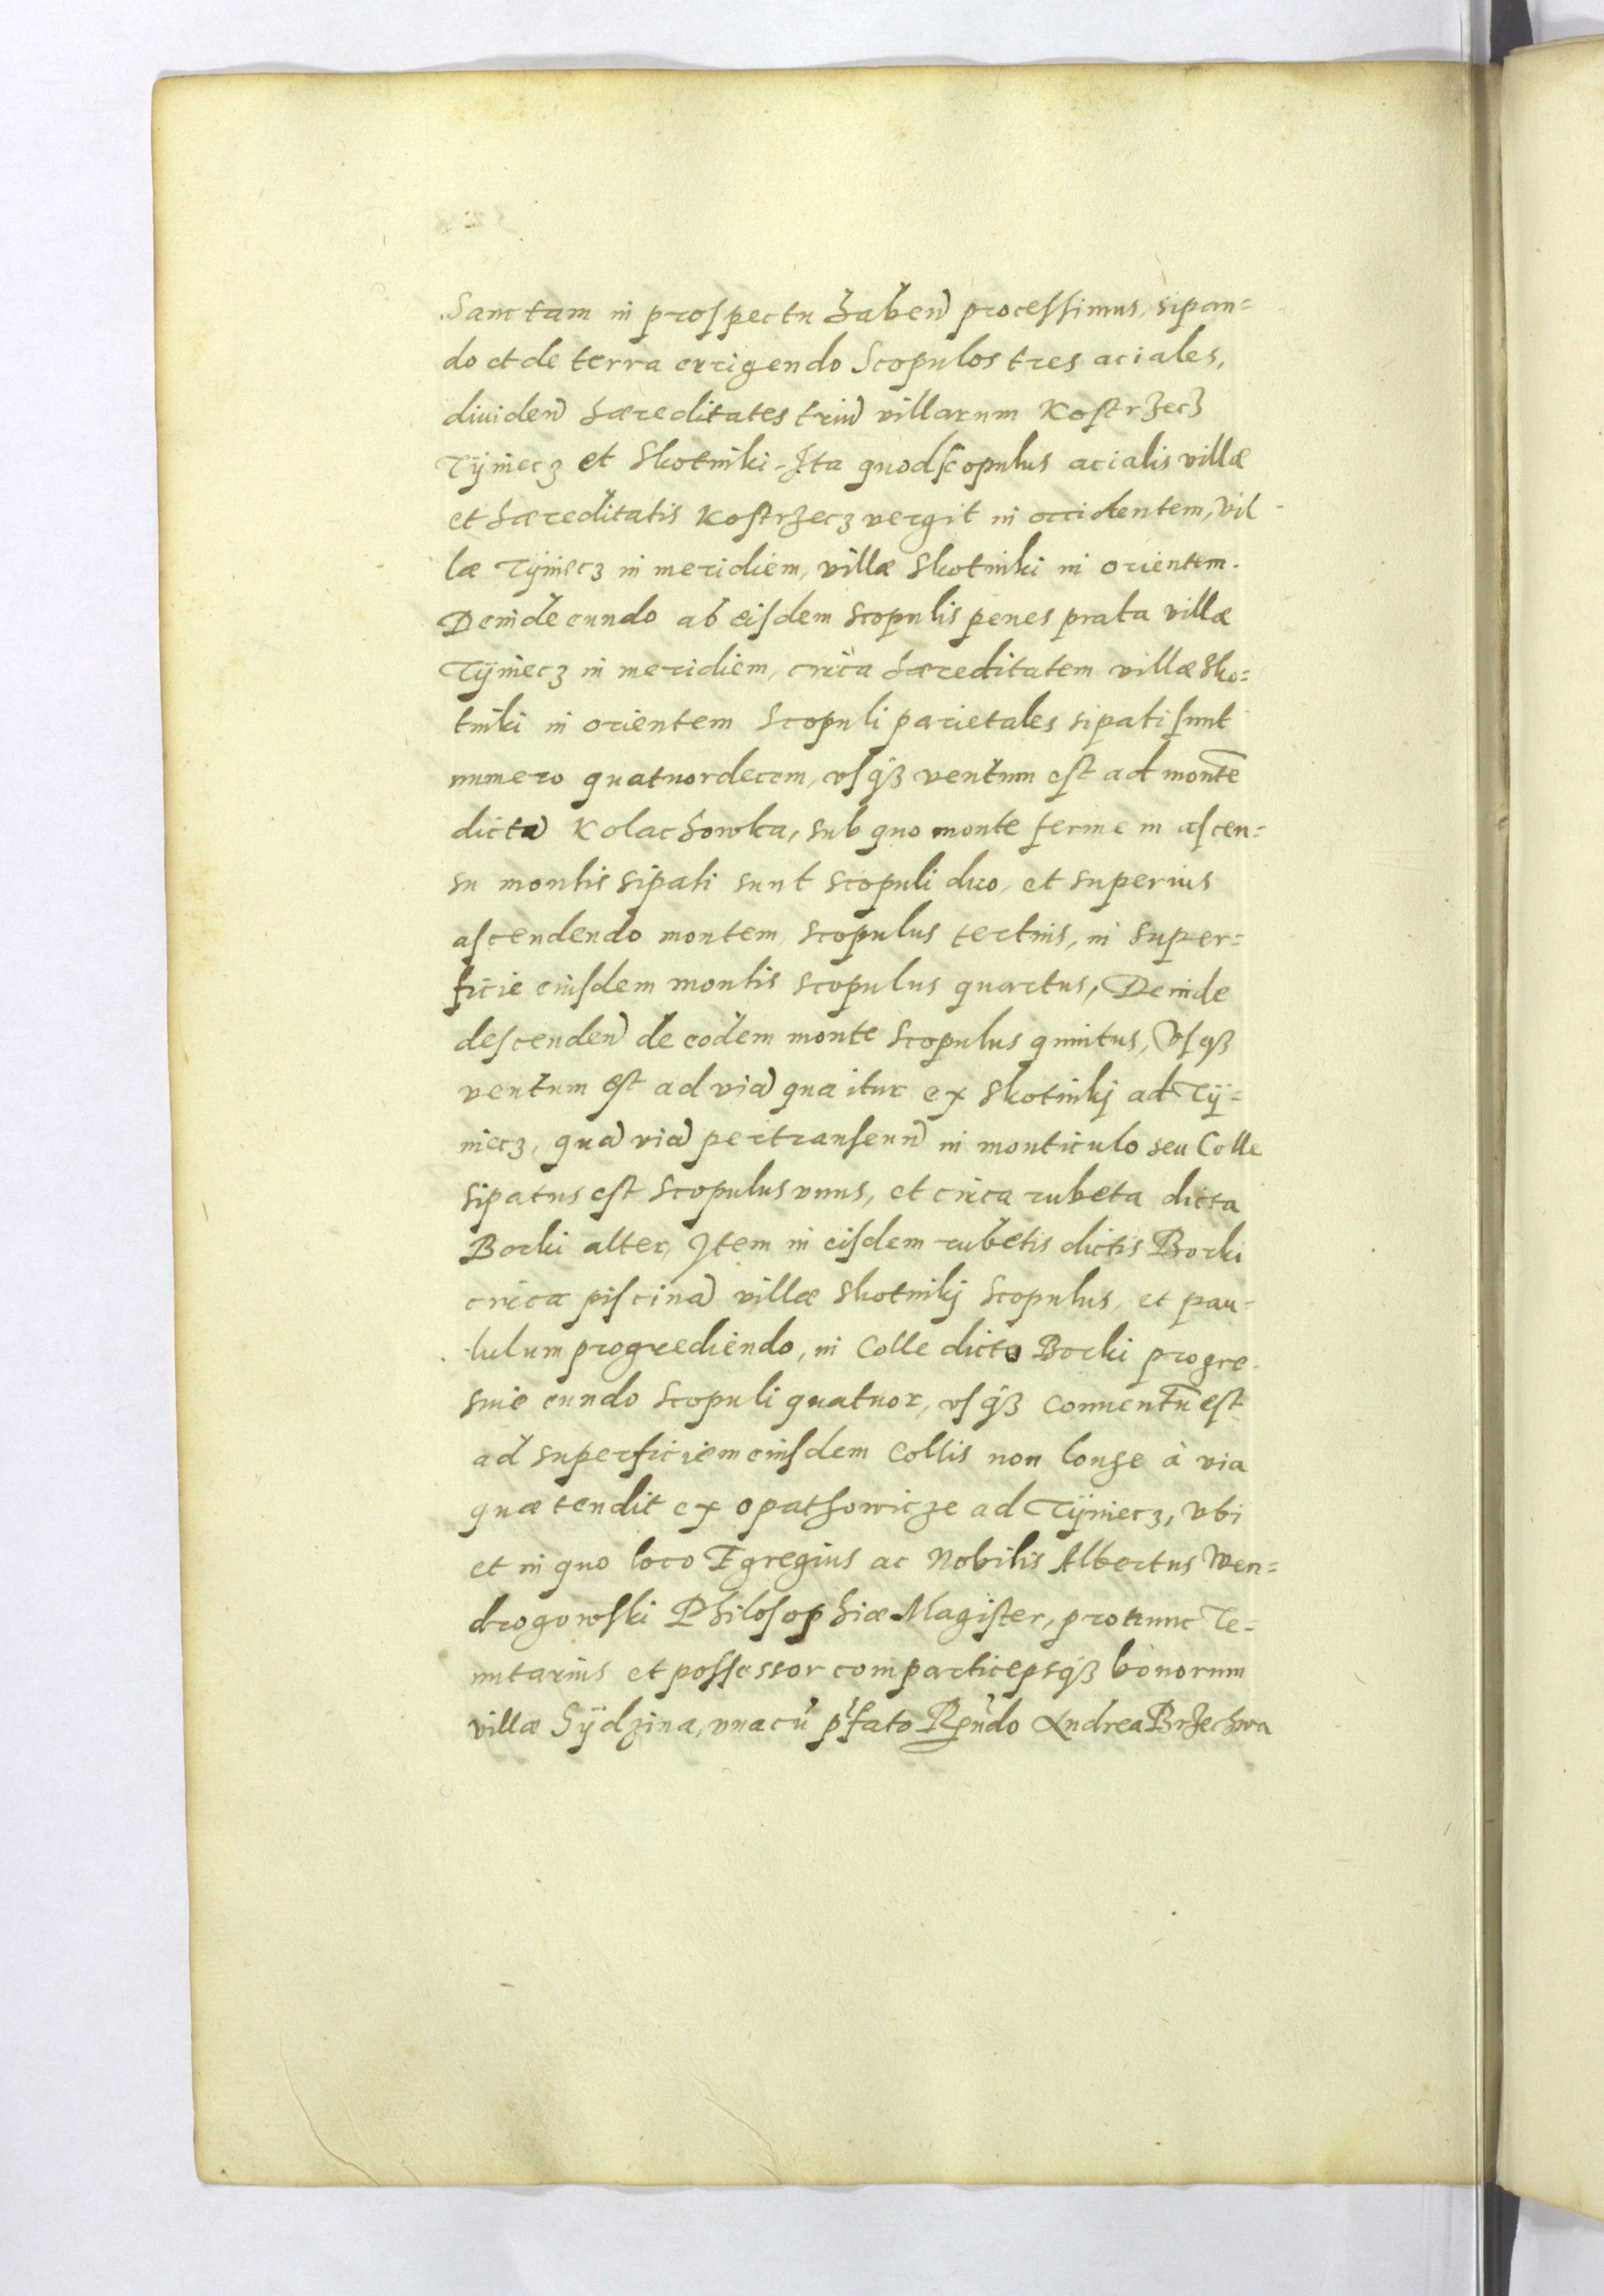 Sanctam in proſpectu haben̄ proceſſimus, sipan=
do et de terra errigendo Scopulos tres aciales,
diuiden̄ hæreditates triū villarum Koſtrzecz
Tÿniecz et Skotniki. Ita quod ſcopulus acialis villæ
et hæreditatis Koſtrzecz vergit in occidentem, vil
læ Tÿniecz in meridiem, villæ Skotniki in orientem.
Deinde eundo ab eiſdem scopulis penes prata villæ
Tÿniecz in meridiem, circa hæreditatem villæ Sko=
tniki in orientem Scopuli parietales sipati ſunt
numero quatuordecem, vſqꝫ ventum eſt ad montē
dictū Kolachowka, sub quo monte ferme in aſcen=
su montis sipati sunt scopuli duo, et superius
aſcendendo montem scopulus tertius, in super=
ficie eiuſdem montis scopulus quartus, Deinde
deſcenden̄ de eodem monte Scopulus quintus, Vſqꝫ
ventum eſt ad viā qua itur ex Skotnikj ad Tÿ=
niecz, quā viā pertranſeun̄ in monticulo seu Colle
sipatus eſt Scopulus vnus, et circa rubeta dicta
Borki alter, Item in eiſdem rubetis dictis Borki
circa piſcinā villæ Skotnikj Scopulus, et pau=
lulum progrediendo, in Colle dicto Borki progre
siue eundo Scopuli quatuor, vſqꝫ conuentū eſt
ad superficiem eiuſdem Collis non longe à via
quæ tendit ex opathowicze ad Tÿniecz, vbi
et in quo loco Egregius ac Nobilis Albertus Wen=
drogowſki Philoſophiæ Magiſter, pro tunc Te=
nutarius et poſſessor comparticepsqꝫ bonorum
villæ Sÿdzina, vna cū p̄fato Rn̄do Andrea Brzechwa